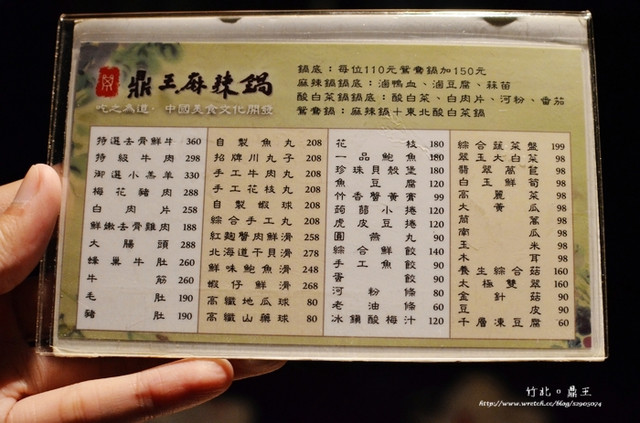 鼎王麻辣鍋
吃之為道·中國美食文化開發
鍋底：每位110元鴛鴦鍋加150元
麻辣鍋鍋底：滷鴨血、滷豆腐、蒜苗
酸白菜鍋鍋底：酸白菜、白肉片、河粉、番茄
鴛鴦鍋：麻辣鍋＋東北酸白菜鍋
特選去骨鮮牛 360
特級牛肉 298
御選小羔羊 330
梅花豬肉 288
白肉片 258
鮮嫩去骨雞肉 188
大腸頭 288
蜂巢牛肚 260
牛筋 260
毛肚 190
豬肚 190
自製魚丸 208
招牌川丸子 208
手工牛肉丸 208
手工花枝丸 208
自製蝦球 208
綜合手工丸 208
紅麴蟹肉鮮滑 258
北海道干貝滑 278
鮮味鮑魚滑 248
蝦仔鮮滑 268
高纖地瓜球 80
高纖山藥球 80
花枝 180
一品鮑魚 180
珍珠貝殼堡 180
魚豆腐 120
竹香蟹黃膏 99
蒟蒻小捲 120
虎皮豆捲 120
圓燕丸 90
綜合鮮餃 140
手工魚餃 90
蛋餃 90
河粉條 80
老油條 60
冰鎮酸梅汁 120
綜合蔬菜盤 199
翠玉大白菜 98
翡翠萵苣 98
白玉鮮筍 98
高麗菜 98
大黃瓜 98
茼蒿 98
南瓜 98
玉米 98
木耳 98
養生綜合菇 160
太極雙翠 160
金針菇 90
豆皮 90
千層凍豆腐 60
竹北。鼎王